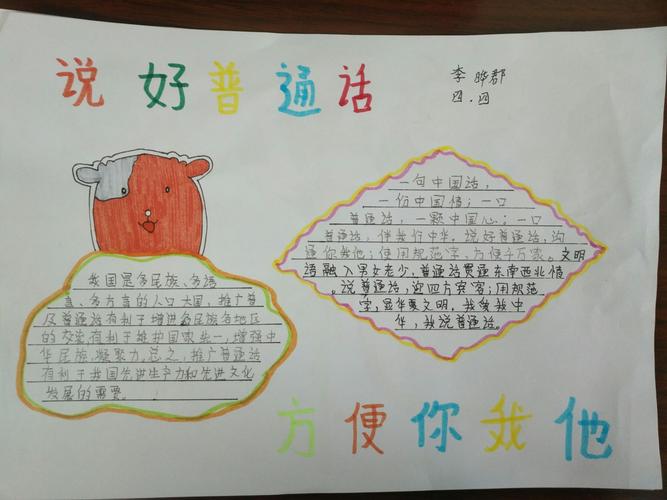 说好普通话
李晔郡
四.四
一句中国话,
一份中国情;一口
普通话,一颗中国心;一口
普通话,伴我行中华。说好普通话,沟
通你我他;使用规范字,方便千万家。文明
语融入男女老少,普通话贯通东南西北情
。说普通话,迎四方宾客;用规范
字,显华夏文明。我爱我中
华,我说普通话。
我国是多民族、多语
言、多方言的人口大国,推广普
及普通话有利于增进各民族各地区
的交流有利于维护国家统一,增强中
华民族凝聚力。总之,推广普通话
有利于我国先进生产力和先进文化
发展的需要。
方便你我他